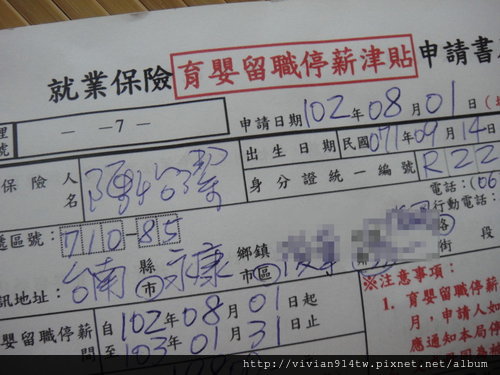 就業保險 育嬰留職停薪津貼 申請書
理 號 — —7—
申請日期 102年08月01日
保險人 名
出生日期 民國071年09月14日
身分證統一編號 R22
遞區號: 710-85
電話:(06
行動電話:
訊地址: 台南 縣 市 永康 鄉鎮 市區 路 街 段
※注意事項:
嬰留職停薪 間
自102年08月01日起
至103年01月31日止
1. 育嬰留職停薪
月,申請人如
應通知本局停
http://vivian914tw.pixnet.net/album